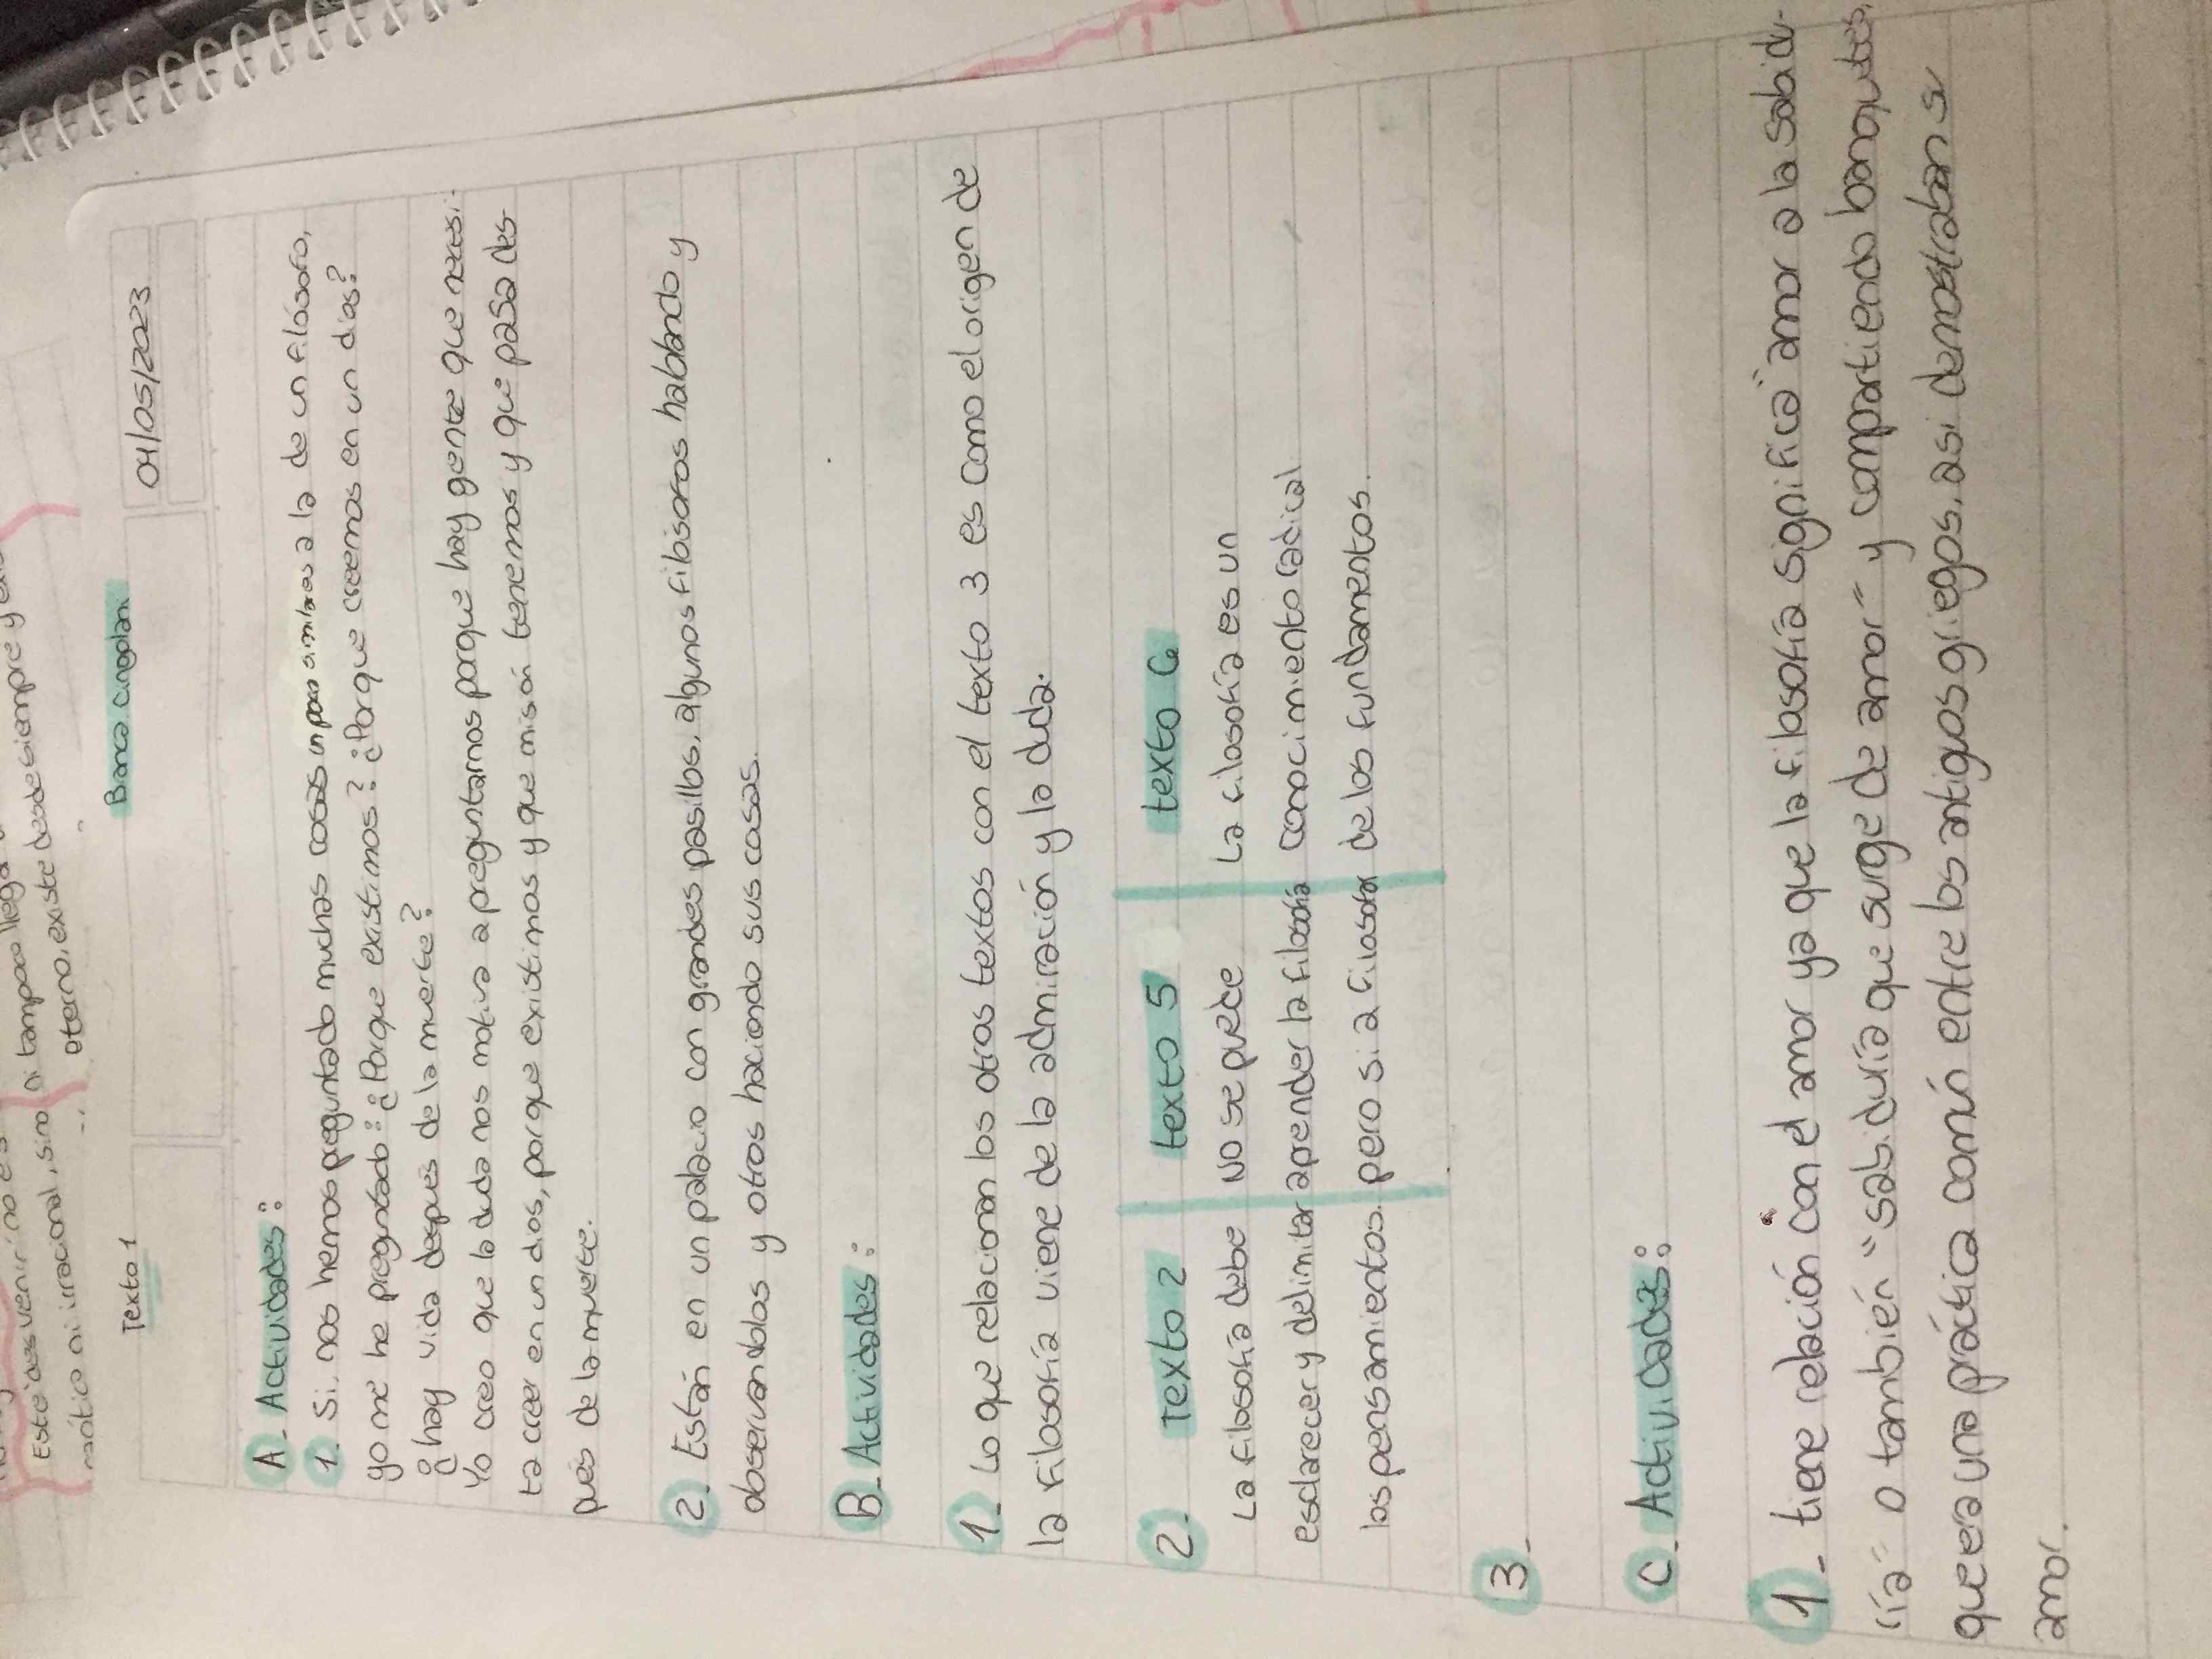 Este
venir, no es
ni tampoco llega
mático ni irracional, sino
eterno, existe desde siempre y
Texto 1
Bianca Cingolani
04/05/2023
A_ Actividades:
1_ Si, nos hemos preguntado muchas cosas un poco similares a la de un filósofo,
yo me he pregntado: ¿Porque existimos? ¿Porque creemos en un dios?
¿hay vida despues de la muerte?
Yo creo que la duda nos motiva a preguntarnos porque hay gente que necesi-
ta creer en un dios, porque existimos y que misión tenemos y que pasa des-
pues de la muerte.
2_ Están en un palacio con grandes pasillos, algunos filósofos hablando y
observandolos y otros haciendo sus cosas.
B_ Actividades:
1_ Lo que relacionan los otros textos con el texto 3 es como el origen de
la filosofía viene de la admiración y la duda.
2_ Texto 2
La filosofía debe
esclarecer y delimitar
los pensamientos.
texto 5
No se puede
aprender la filosofía
pero si a filosofar
texto 6
La filosofía es un
conocimiento radical
de los fundamentos.
3_
C_ Actividades:
1_ tiene relación con el amor ya que la filosofía significa "amor a la sabidu-
ría" o también "sabiduría que surge de amor" y compartiendo banquetes,
que era una práctica común entre los antiguos griegos, asi demostraban su
amor.